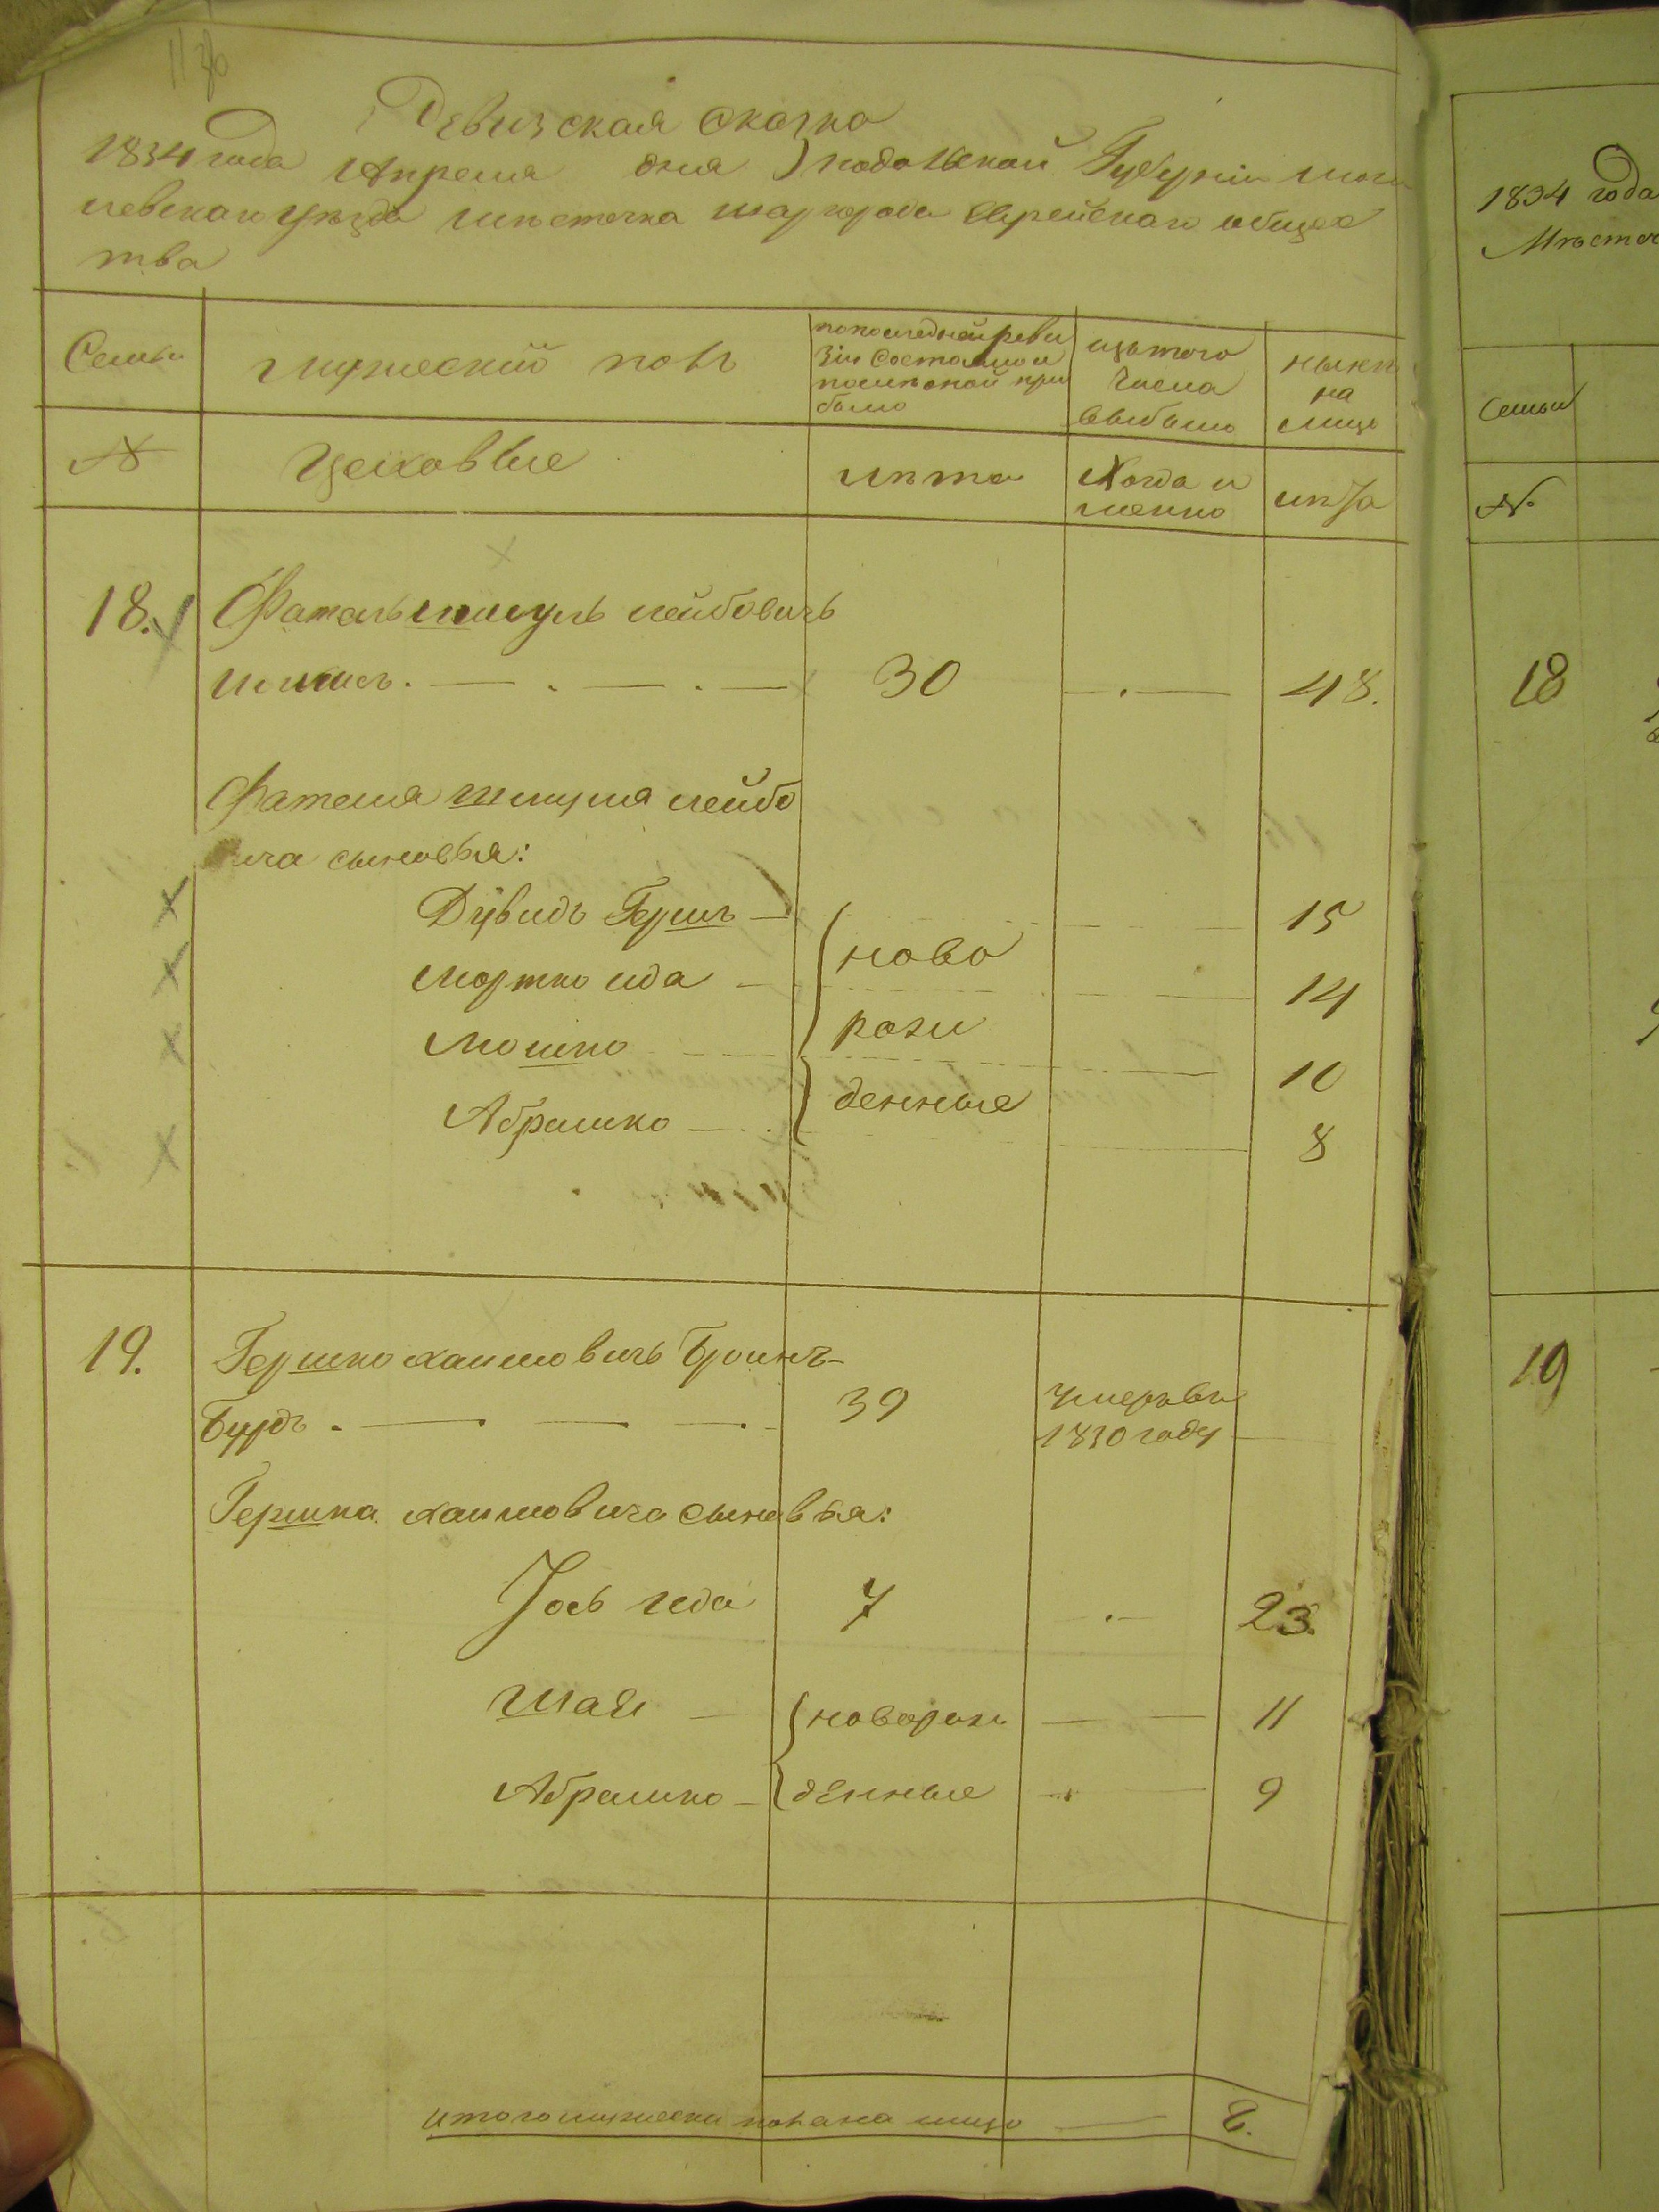 Ревизская сказка
1834 года Апреля дня Подольской Губернии моги
левскаго уѣзда мѣстечка шаргорода Еврейскаго общес
тва
Семьи
мужескій полъ
по последней реви
зіи состояло и
после оной при
было
изъ того
числа
выбыло
нынѣ
на
лицо
№
Цеховые
лѣта
Когда и
менно
лѣта
18.
Фатель шмуль лейбовичъ
30
48.
Фателя шмуля лейбо
вича сыновья:
Дувидъ Гершъ
15
мортко ида
ново
14
мошко
рож
10
Абрамко
денные
8
19.
Гершко хаимовичъ
39
умеръ въ
1830 году
Гершка хаимовича сыновья:
Іось
7
23.
шая
новорож
11
Абрамко
денные
9
итого мужеска пола на лицо
8.
1834 года
Мѣсточ
семьи
№
18
19